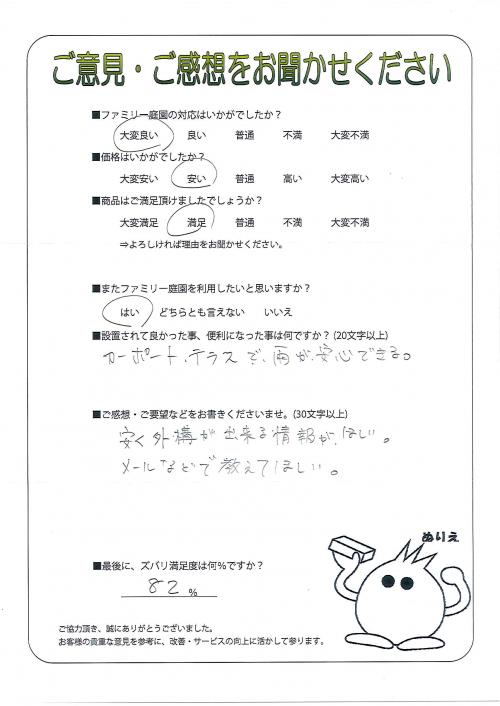 ご意見・ご感想をお聞かせください
■ファミリー庭園の対応はいかがでしたか？
大変良い 良い 普通 不満 大変不満
■価格はいかがでしたか？
大変安い 安い 普通 高い 大変高い
■商品はご満足頂けましたでしょうか？
大変満足 満足 普通 不満 大変不満
⇒よろしければ理由をお聞かせください。
■またファミリー庭園を利用したいと思いますか？
はい どちらとも言えない いいえ
■設置されて良かった事、便利になった事は何ですか？(20文字以上)
カーポート、テラスで、雨が、安心できる。
■ご感想・ご要望などをお書きくださいませ。(30文字以上)
安く外構が出来る情報が、ほしい。
メールなどで教えてほしい。
ぬりえ
■最後に、ズバリ満足度は何％ですか？
82 %
ご協力頂き、誠にありがとうございました。
お客様の貴重な意見を参考に、改善・サービスの向上に活かして参ります。